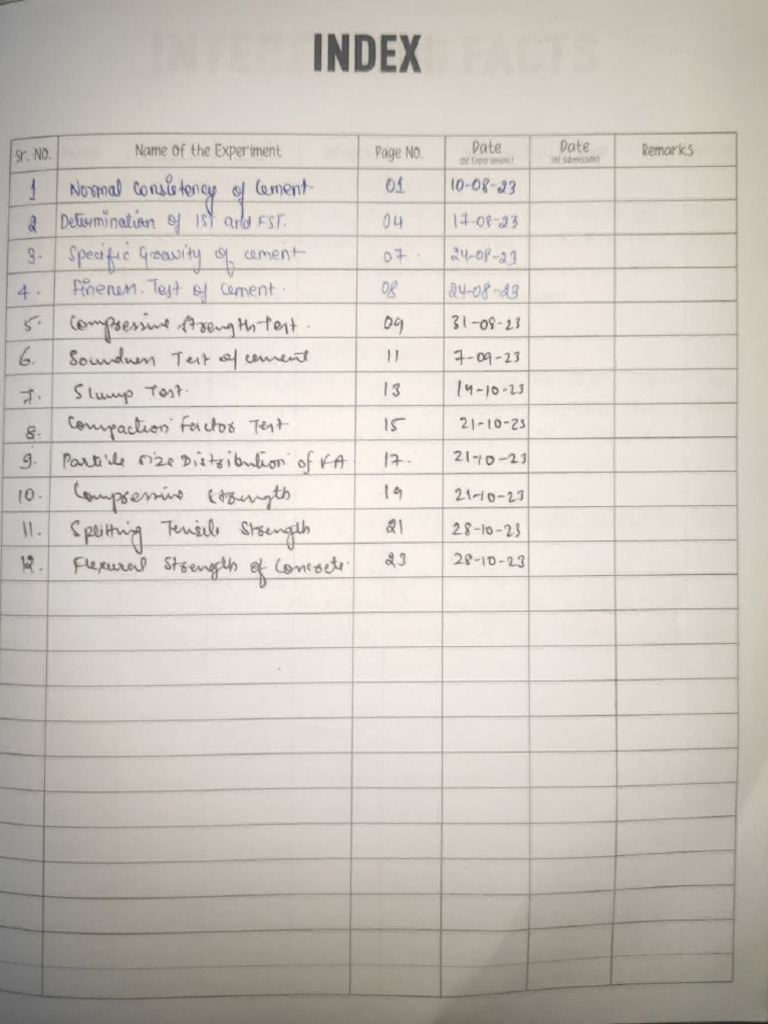 INDEX
Sr. NO. Name Of the Experiment Page NO. Date (of Experiment) Date (of Submission) Remarks
1 Normal Consistency of Cement. 01 10-08-23
2 Determination of IST and FST. 04 17-08-23
3. Specific Gravity of cement 07. 24-08-23
4. Fineness Test of Cement. 08 24-08-23
5. Compressive Strength Test. 09 31-08-23
6. Soundness Test of cement 11 7-09-23
7. Slump Test. 13 14-10-23
8. Compaction Factor Test 15 21-10-23
9. Particle size Distribution of FA 17. 21-10-23
10. Compressive Strength 19 21-10-23
11. Splitting Tensile Strength 21 28-10-23
12. Flexural Strength of Concrete. 23 28-10-23